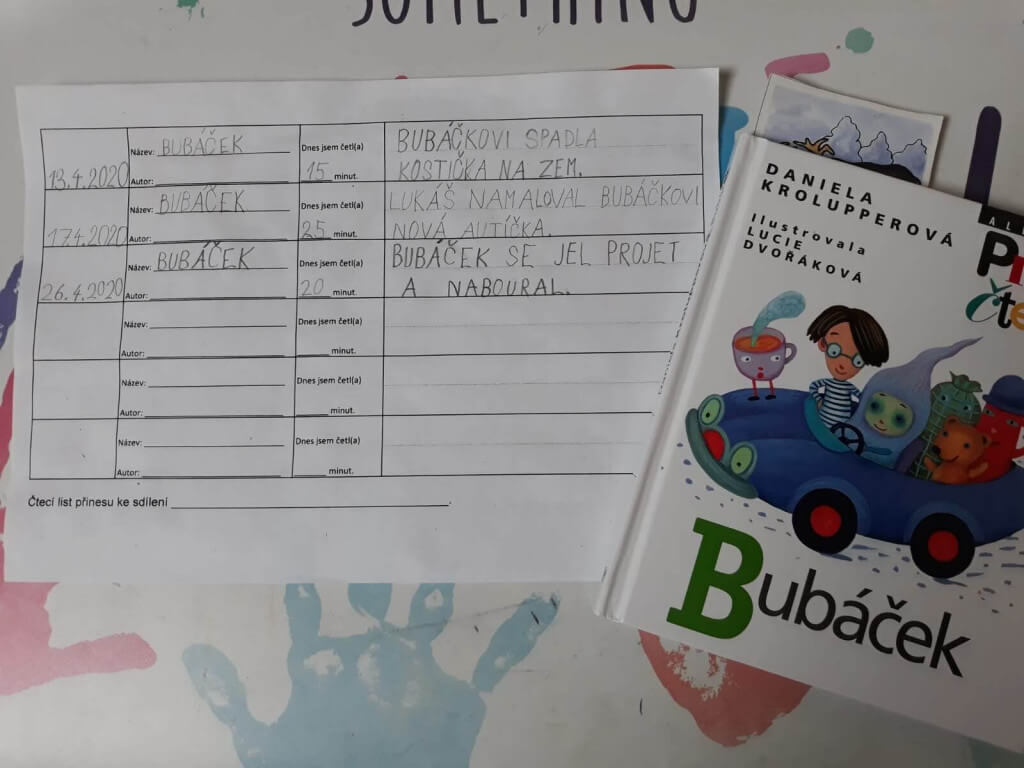 SOMETHING
13.4.2020
Název: BUBÁČEK
Autor:
Dnes jsem četl(a)
15 minut.
BUBÁČKOVI SPADLA
KOSTIČKA NA ZEM.
17.4.2020
Název: BUBÁČEK
Autor:
Dnes jsem četl(a)
25 minut.
LUKÁŠ NAMALOVAL BUBÁČKOVI
NOVÁ AUTÍČKA.
26.4.2020
Název: BUBÁČEK
Autor:
Dnes jsem četl(a)
20 minut.
BUBÁČEK SE JEL PROJET
A NABOURAL.
Název:
Autor:
Dnes jsem četl(a)
minut.
Název:
Autor:
Dnes jsem četl(a)
minut.
Název:
Autor:
Dnes jsem četl(a)
minut.
Čtecí list přinesu ke sdílení
DANIELA
KROLUPPEROVÁ
Ilustrovala
LUCIE
DVOŘÁKOVÁ
Bubáček